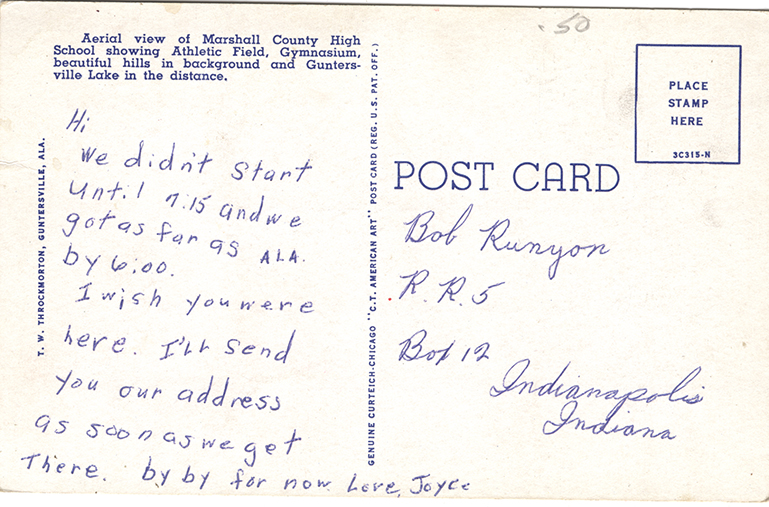 .50
Aerial view of Marshall County High
School showing Athletic Field, Gymnasium,
beautiful hills in background and Gunters-
ville Lake in the distance.
T. W. THROCKMORTON, GUNTERSVILLE, ALA.
Hi
We didn't start
Until 7:15 and we
got as far as ALA.
by 6:00.
I wish you were
here. I'll send
you our address
as soon as we get
There. by by for now Love, Joyce
GENUINE CURTEICH-CHICAGO "C.T. AMERICAN ART" POST CARD (REG. U.S. PAT. OFF.)
PLACE
STAMP
HERE
3C315-N
POST CARD
Bob Runyon
R. R. 5
Box 12
Indianapolis
Indiana